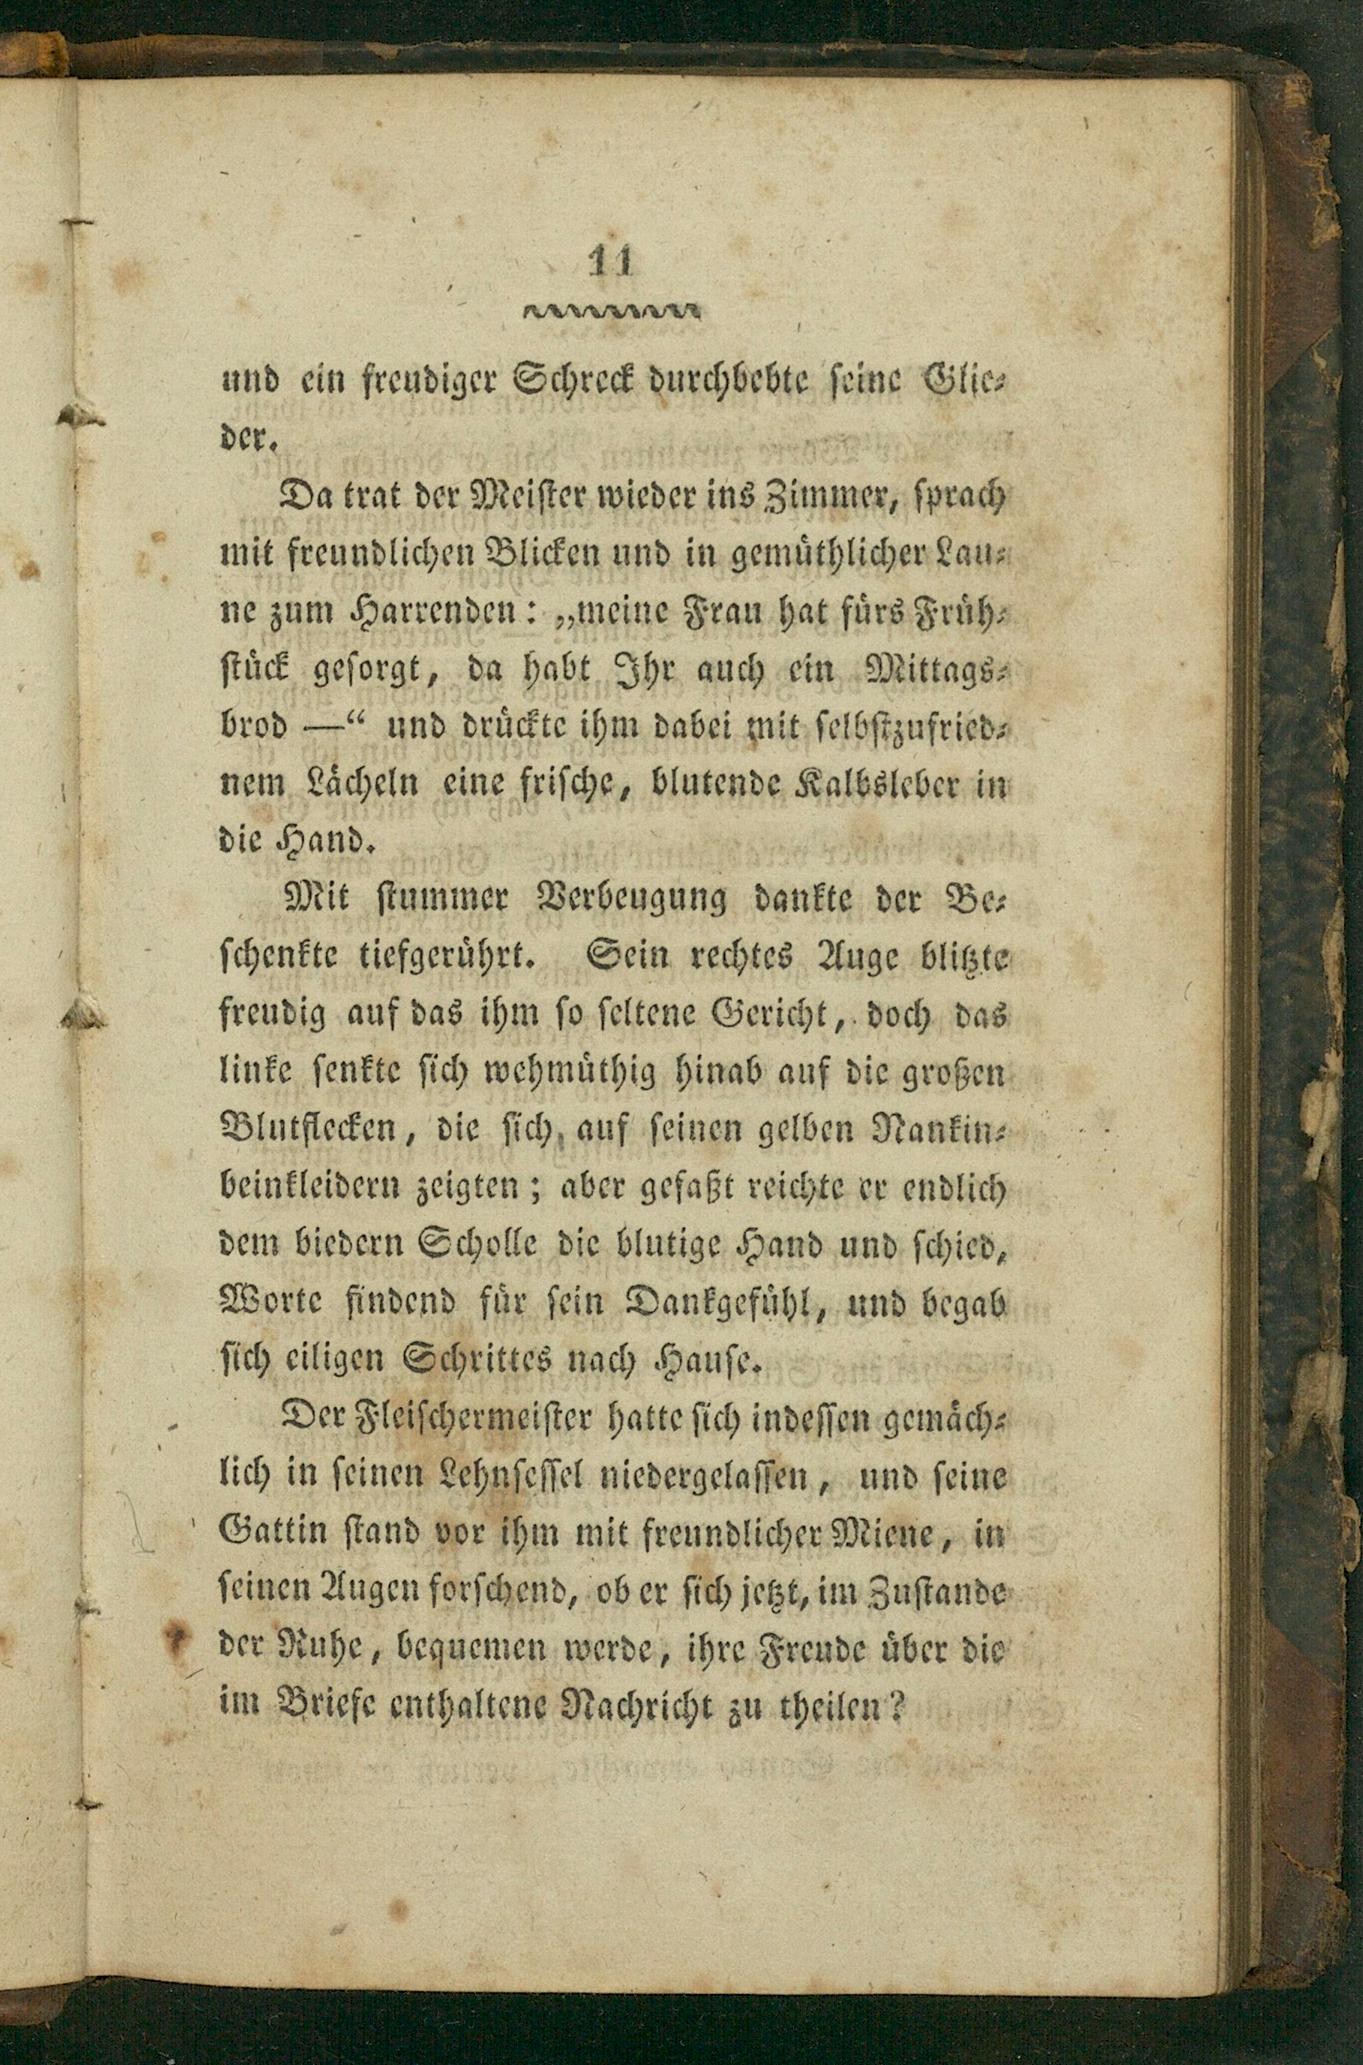 11
und ein freudiger Schreck durchbebte seine Glie-
der.
Da trat der Meister wieder ins Zimmer, sprach
mit freundlichen Blicken und in gemüthlicher Lau-
ne zum Harrenden: „meine Frau hat fürs Früh-
stück gesorgt, da habt Ihr auch ein Mittags-
brod —“ und drückte ihm dabei mit selbstzufried-
nem Lächeln eine frische, blutende Kalbsleber in
die Hand.
Mit stummer Verbeugung dankte der Be-
schenkte tiefgerührt. Sein rechtes Auge blitzte
freudig auf das ihm so seltene Gericht, doch das
linke senkte sich wehmüthig hinab auf die großen
Blutflecken, die sich auf seinen gelben Nankin-
beinkleidern zeigten; aber gefaßt reichte er endlich
dem biedern Scholle die blutige Hand und schied,
Worte findend für sein Dankgefühl, und begab
sich eiligen Schrittes nach Hause.
Der Fleischermeister hatte sich indessen gemäch-
lich in seinen Lehnsessel niedergelassen, und seine
Gattin stand vor ihm mit freundlicher Miene, in
seinen Augen forschend, ob er sich jetzt, im Zustande
der Ruhe, bequemen werde, ihre Freude über die
im Briefe enthaltene Nachricht zu theilen?